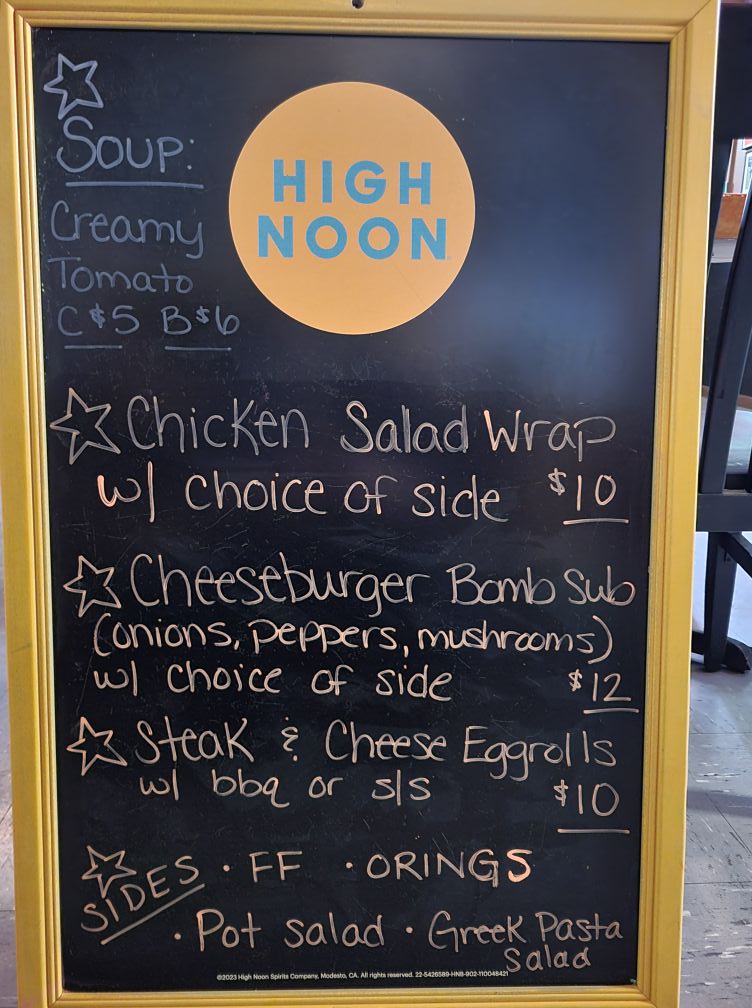 SOUP:
Creamy
Tomato
C $5 B $6
HIGH
NOON
Chicken Salad Wrap
w/ choice of side $10
Cheeseburger Bomb Sub
(onions, peppers, mushrooms)
w/ choice of side $12
Steak & Cheese Eggrolls
w/ bbq or s/s $10
SIDES · FF · ORINGS
· Pot salad · Greek Pasta
Salad
©2023 High Noon Spirits Company, Modesto, CA. All rights reserved. 22-5426589-HNB-902-110048421